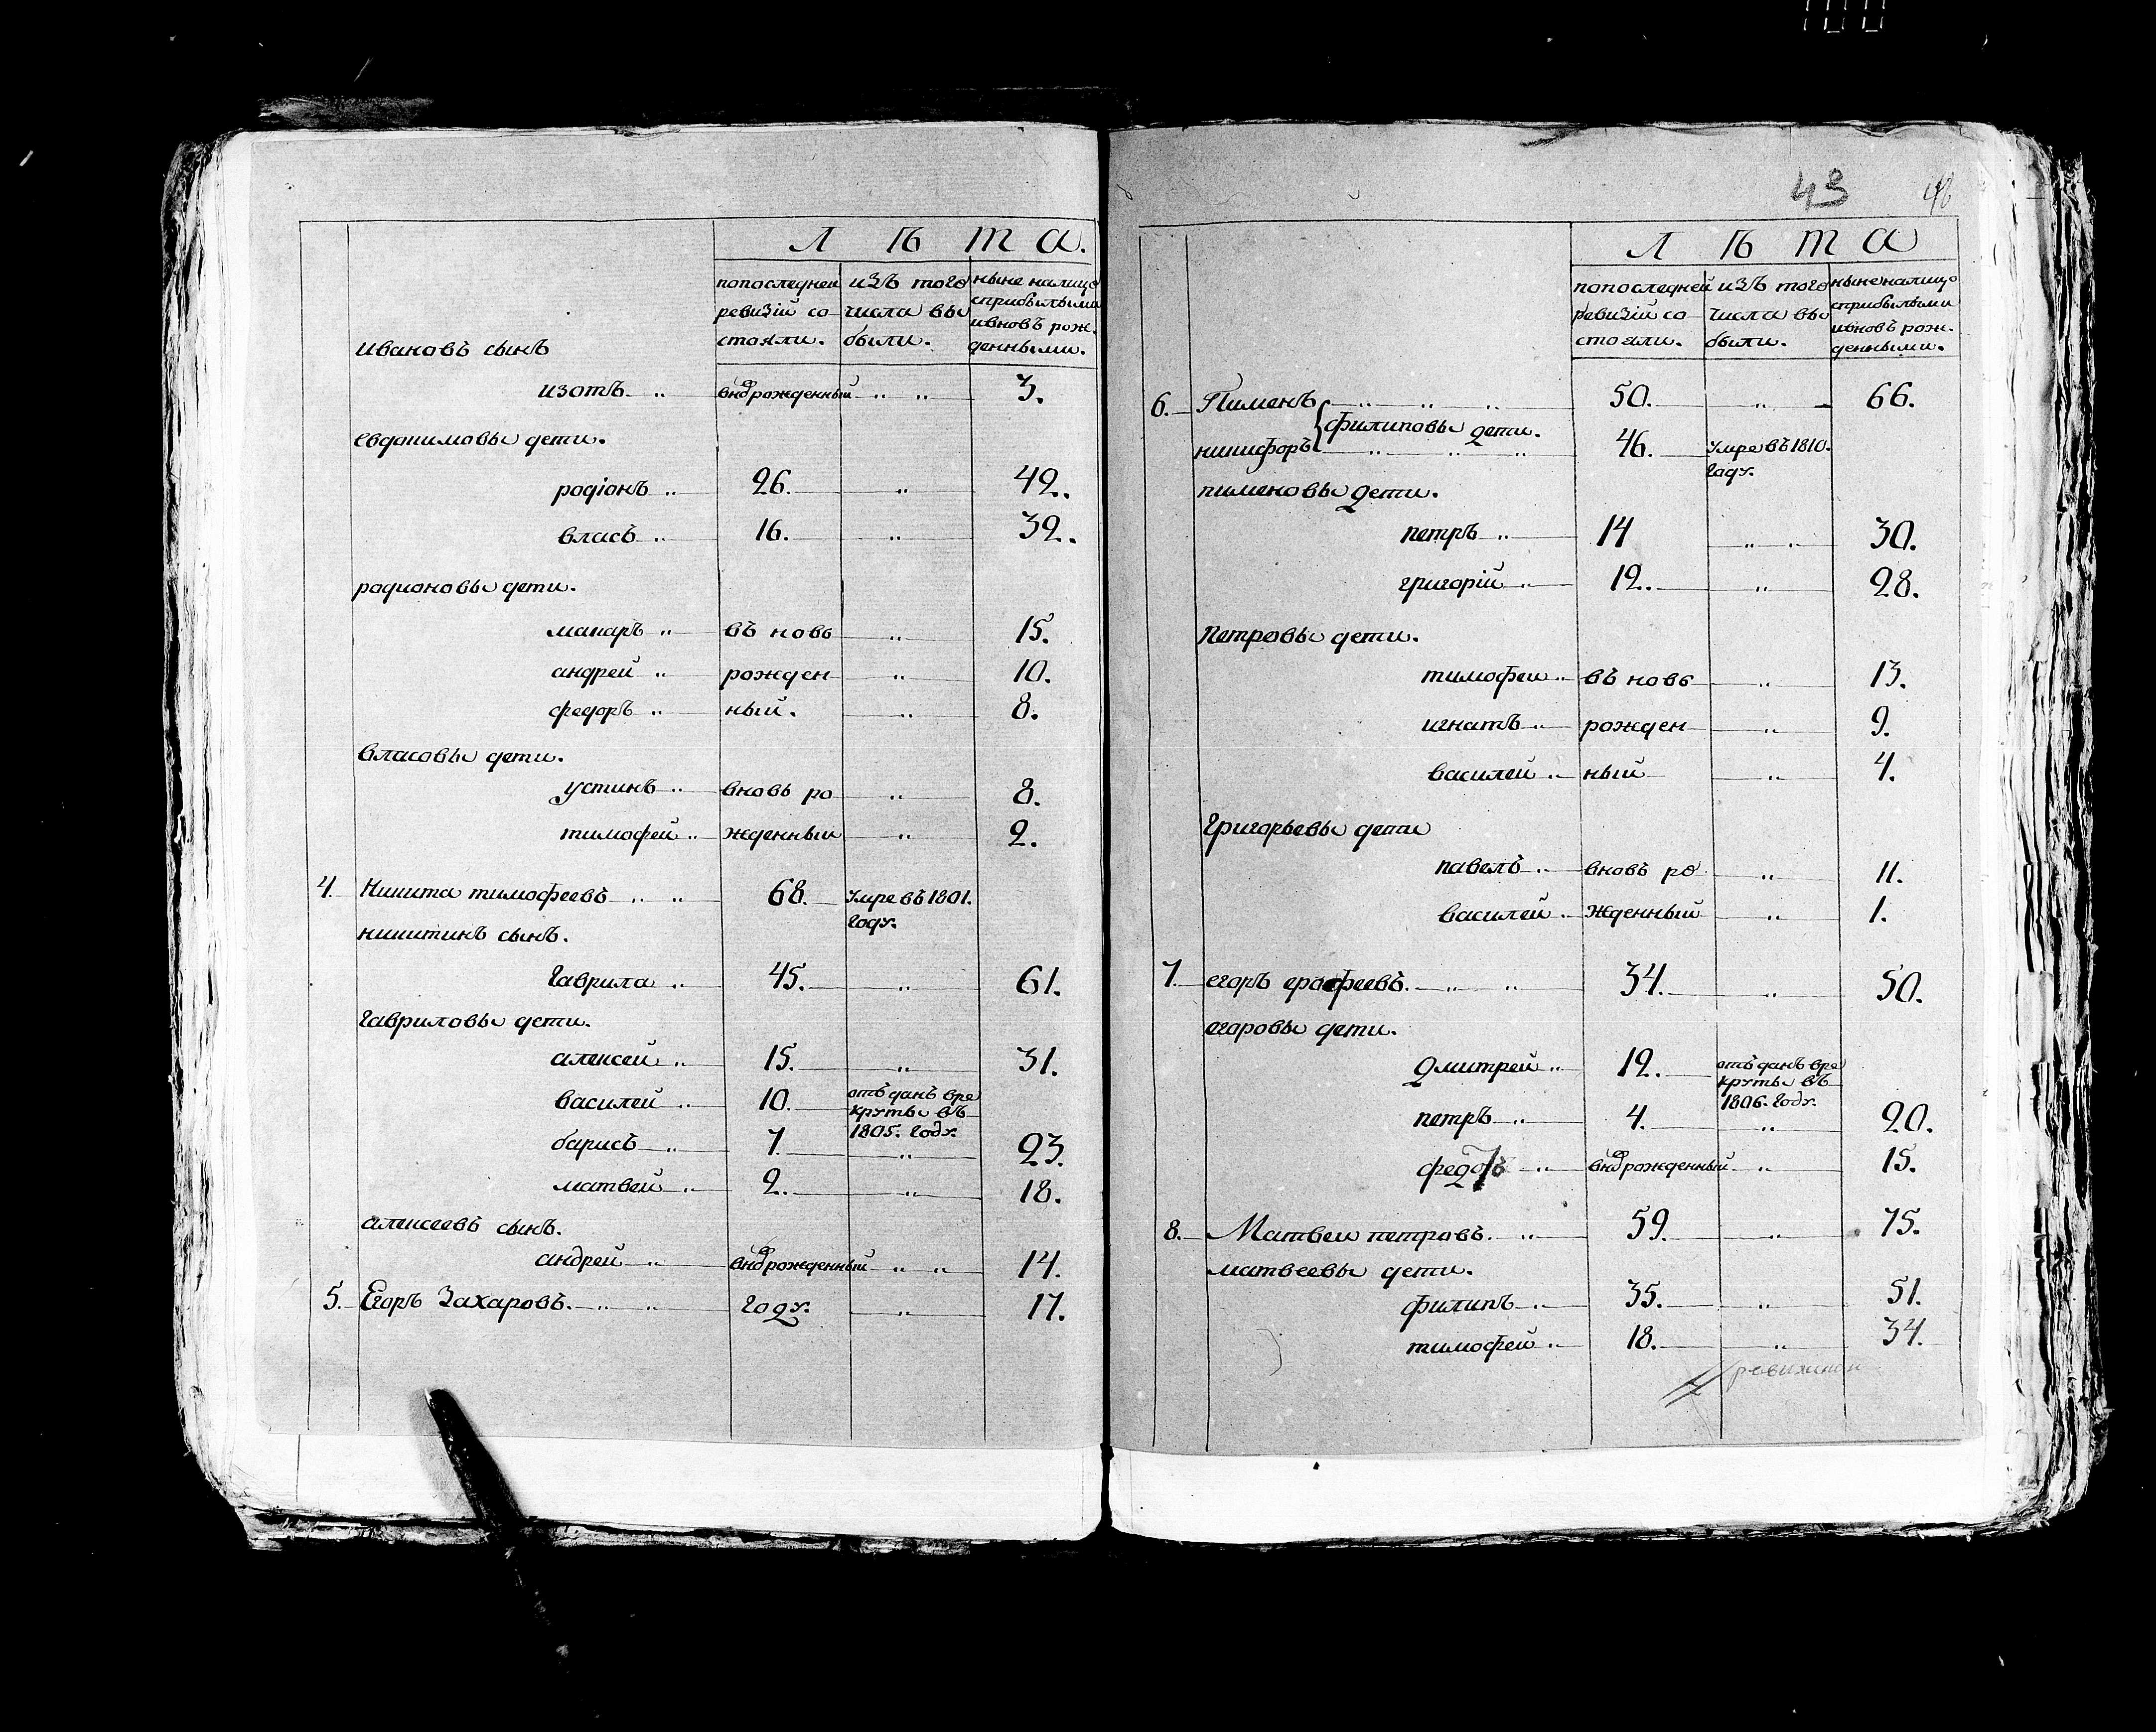 Л Ѣ Т А.
попоследней ревизiи состояли.
изъ того числа выбыли.
ныне налицо сприбылыми ивновъ рожденными.
ивановъ сынъ
изотъ „ вновьрожденный „ „ 3.
евдокимовы дети.
родiонъ „ 26. „ 42.
власъ „ 16. „ 32.
родионовы дети.
макаръ „ въ новь „ 15.
андрей „ рожден „ 10.
федоръ „ ный. „ 8.
власовы дети.
устинъ „ вновь ро „ 8.
тимофей „ жденный „ 2.
4. Никита тимофеевъ „ „ 68. Умре въ 1801.
году.
никитинъ сынъ.
гаврила „ 45. „ 61.
гавриловы дети.
алексей „ 15. „ 31.
василей „ 10. отъданъ вре
круты въ
1805. году.
барисъ „ 7. „ 23.
матвей „ 2. „ 18.
алексеевъ сынъ.
андрей „ вновьрожденный „ „ 14.
5. Егоръ Захаровъ. „ „ году. „ 17.
43
Л Ѣ Т А
попоследней ревизiй состояли.
изъ того числа выбыли.
ныненалицо сприбылыми ивновъ рожденными.
6. Пименъ „ „ „ 50. „ 66.
филиповы дети.
никифоръ „ „ „ 46. Умре въ 1810.
году.
пименовы дети.
петръ „ 14 „ „ 30.
григорiй „ 12. „ 28.
Петровы дети.
тимофеи „ въ новь „ 13.
игнатъ „ рожден „ 9.
василей „ ный „ 4.
Григорьевы дети
павелъ „ вновь ро „ 11.
василей „ жденный „ 1.
7. егоръ ерофеевъ. „ „ 34. „ 50.
егоровы дети.
дмитрей „ 12. отъданъ вре
круты въ
1806. году.
петръ „ 4. „ 20.
„ вновьрожденный „ 15.
8. Матвеи петровъ. „ 59. „ 75.
матвеевы дети.
филипъ „ 35. „ 51.
тимофей „ 18. „ 34.